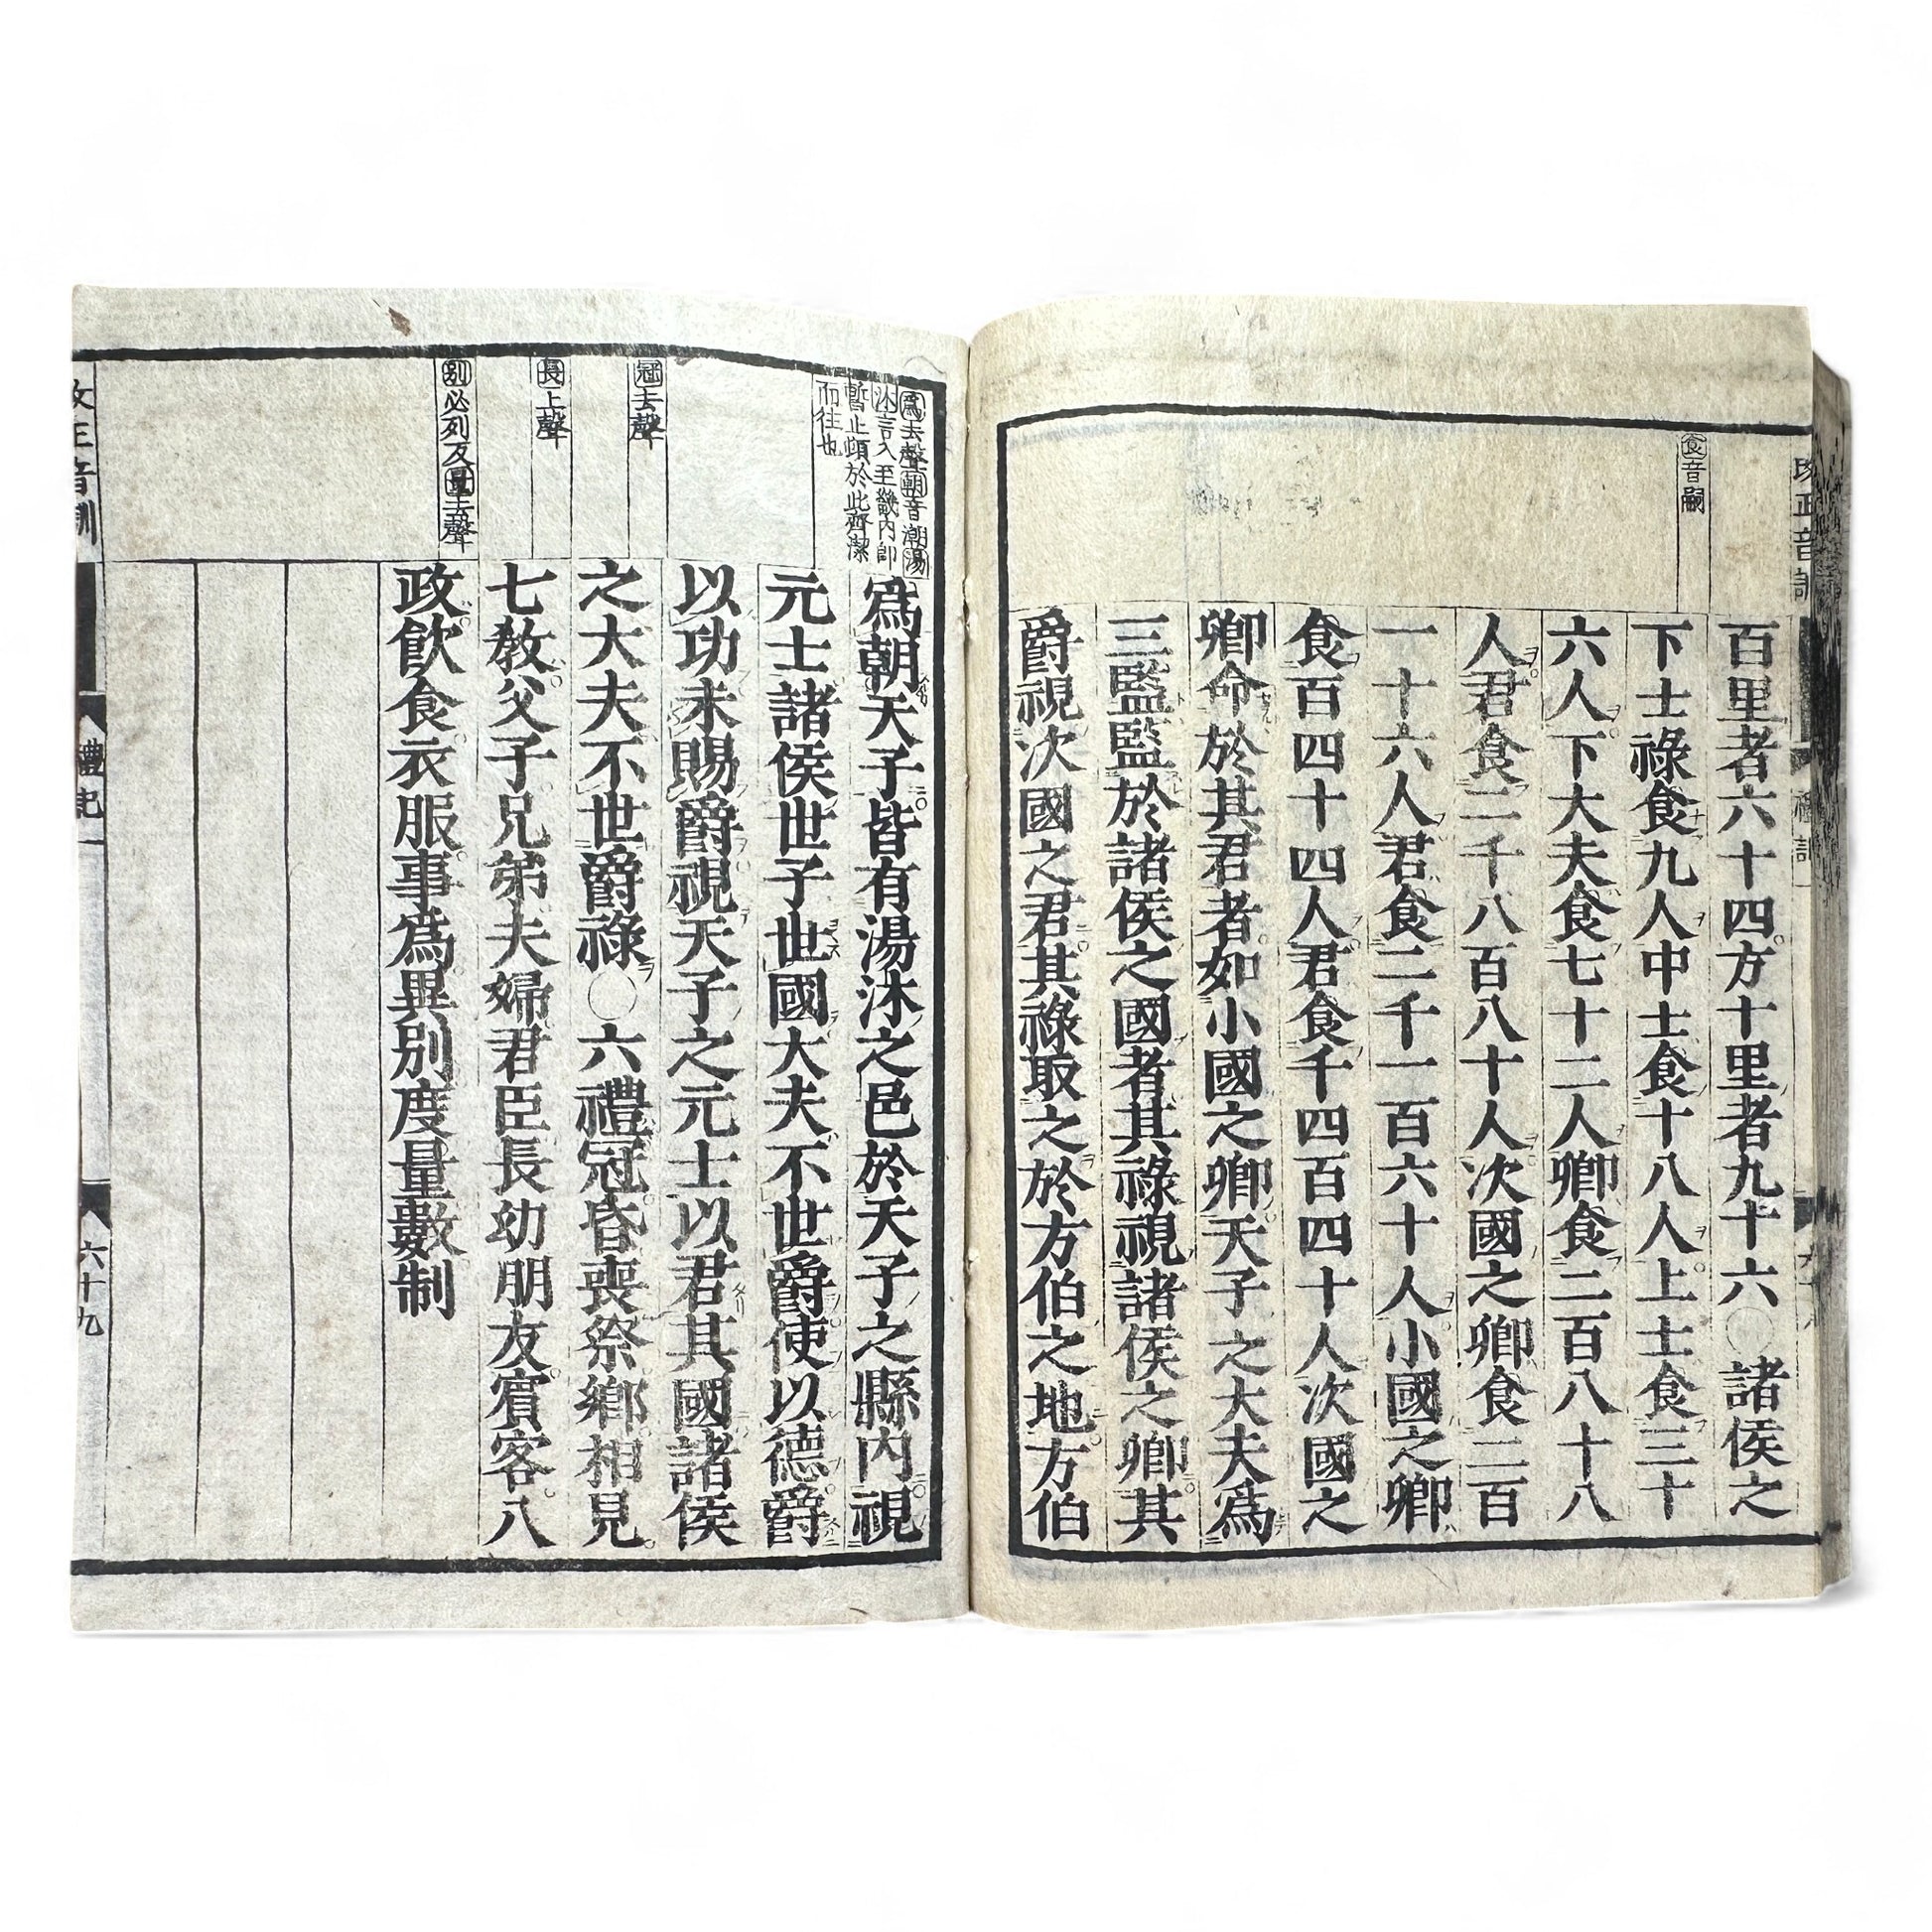 食音嗣
百里者六十四方十里者九十六○諸侯之
下士祿食九人中士食十八人上士食三十
六人下大夫食七十二人卿食二百八十八
人君食二千八百八十人次國之卿食二百
一十六人君食二千一百六十人小國之卿
食百四十四人君食千四百四十人次國之
卿命於其君者如小國之卿天子之大夫爲
三監監於諸侯之國者其祿視諸侯之卿其
爵視次國之君其祿取之於方伯之地方伯
爲去聲朝音潮湯
沐言入至畿内即
暫止頓於此齊潔
而往也
冠去聲
長上聲
別必列反量去聲
爲朝天子皆有湯沐之邑於天子之縣内視
元士諸侯世子世國大夫不世爵使以德爵
以功未賜爵視天子之元士以君其國諸侯
之大夫不世爵祿○六禮冠昏喪祭鄉相見
七教父子兄弟夫婦君臣長幼朋友賓客八
政飲食衣服事爲異別度量數制
音訓
禮記一
六十九